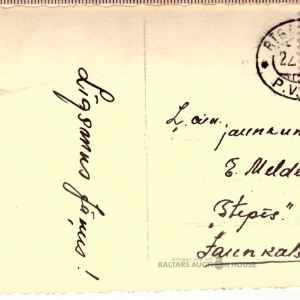 Līgsmus Jāņus!
RĪGA
22
P.V.
Ļ. cien.
jaunkun
E. Melde
"Stepēs"
Jaunkals
BALTARS AUCTION HOUSE